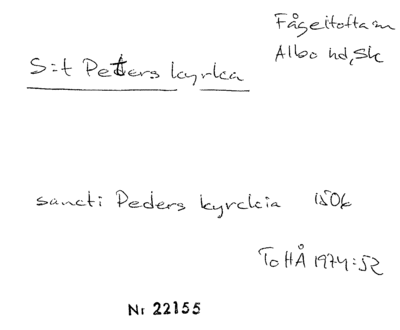 Fågeltofta sn
Albo hd, Sk
S:t Petters kyrka
sancti Peders kyrckia 1506
ToHÅ 1974:52
Nr 22155